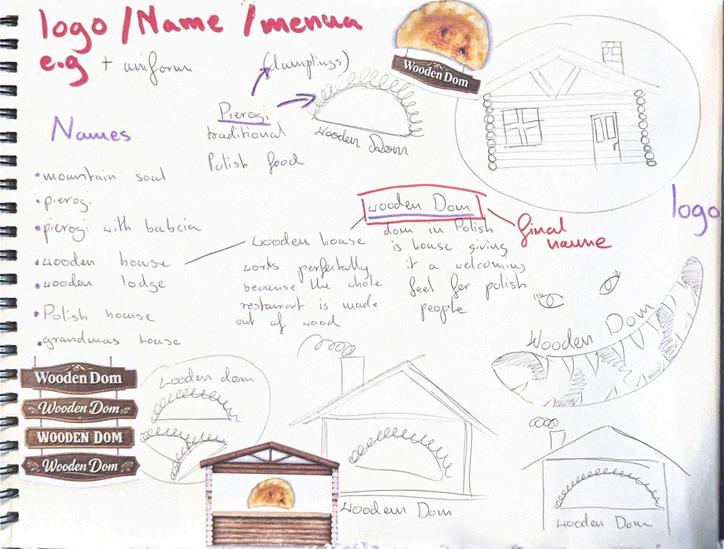 logo /Name /menua
e.g + uniform
(dumplings)
Pierogi
traditional
Polish food
wooden Dom
Wooden Dom
Names
mountain soul
pierogi
pierogi with babcia
wooden house
wooden lodge
Polish house
grandmas house
wooden house
works perfectally
because the whole
restaurant is made
out of wood
wooden Dom
dom in Polish
is house giving
it a welcoming
feel for polish
people
final
name
logo
Wooden Dom
Wooden Dom
Wooden Dom
WOODEN DOM
Wooden Dom
wooden dom
wooden Dom
wooden Dom